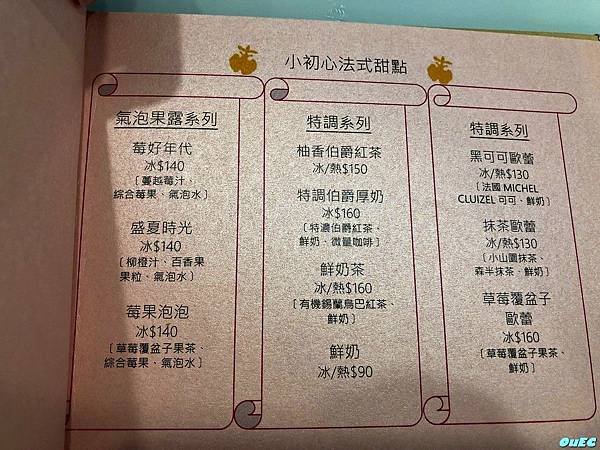 小初心法式甜點
氣泡果露系列
莓好年代
冰$140
〔蔓越莓汁、
綜合莓果、氣泡水〕
盛夏時光
冰$140
〔柳橙汁、百香果
果粒、氣泡水〕
莓果泡泡
冰$140
〔草莓覆盆子果茶、
綜合莓果、氣泡水〕
特調系列
柚香伯爵紅茶
冰/熱$150
特調伯爵厚奶
冰$160
〔特濃伯爵紅茶、
鮮奶、微量咖啡〕
鮮奶茶
冰/熱$160
〔有機錫蘭烏巴紅茶、
鮮奶〕
鮮奶
冰/熱$90
特調系列
黑可可歐蕾
冰/熱$130
〔法國 MICHEL
CLUIZEL 可可、鮮奶〕
抹茶歐蕾
冰/熱$130
〔小山園抹茶、
森半抹茶、鮮奶〕
草莓覆盆子
歐蕾
冰$160
〔草莓覆盆子果茶、
鮮奶〕
OuEC